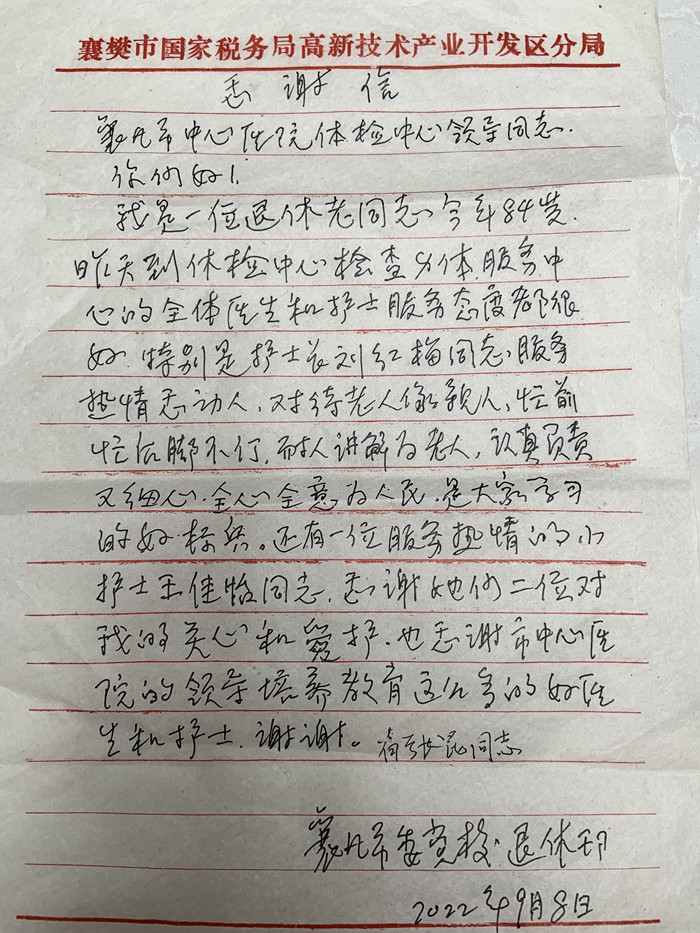 襄樊市国家税务局高新技术产业开发区分局
感谢信
襄阳市中心医院体检中心领导同志.
你们好!
我是一位退休老同志今年84岁.
昨天到体检中心检查身体服务中
心的全体医生和护士服务态度都很
好.特别是护士长刘红梅同志,服务
热情感动人,对待老人像亲人,忙前
忙后脚不停,耐人讲解为老人,认真负责
又细心.全心全意为人民.是大家学习
的好标兵。还有一位服务热情的小
护士王佳怡同志.感谢她们二位对
我的关心和爱护.也感谢市中心医
院的领导培养教育这么多的好医
生和护士.谢谢。同志
襄阳市委党校.退休
2022年9月8日